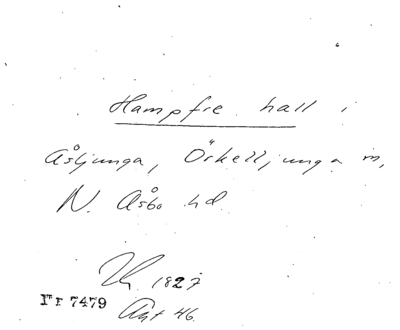 Hampfre hall i
Åsljunga, Örkelljunga sn,
N. Åsbo hd.
1827
Nr 7479
Ant 46.